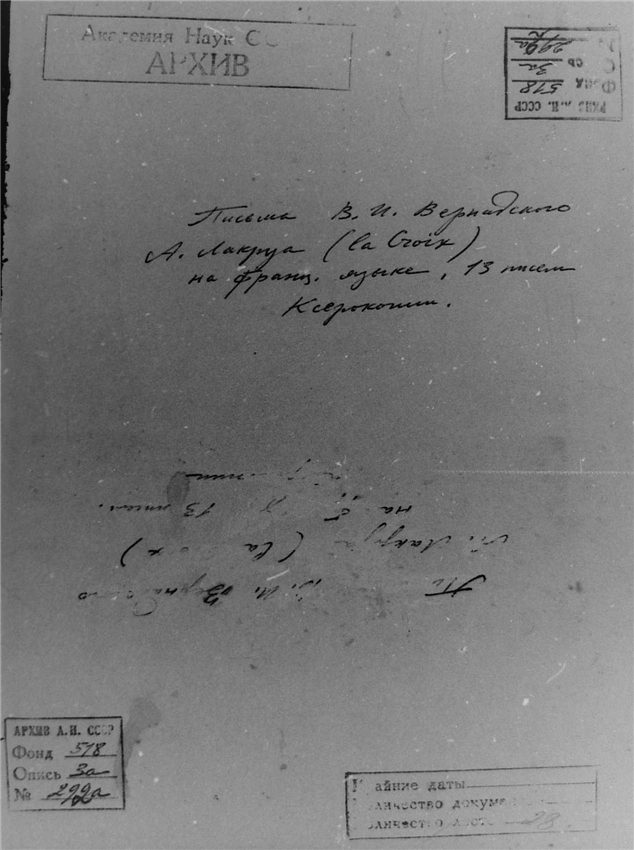 Академия Наук СС
АРХИВ
АРХИВ А.Н. СССР
Фонд 518
Опись 3а
№ 292а
Письма В. И. Вернадского
А. Лакруа (la Croix)
на франц. языке, 13 писем
Ксерокопии.
13 писем.
на
А. Лакруа (la
В. И. Верна
АРХИВ А.Н. СССР
Фонд 518
Опись 3а
№ 292а
айние даты
личество докуме
личество листо 28